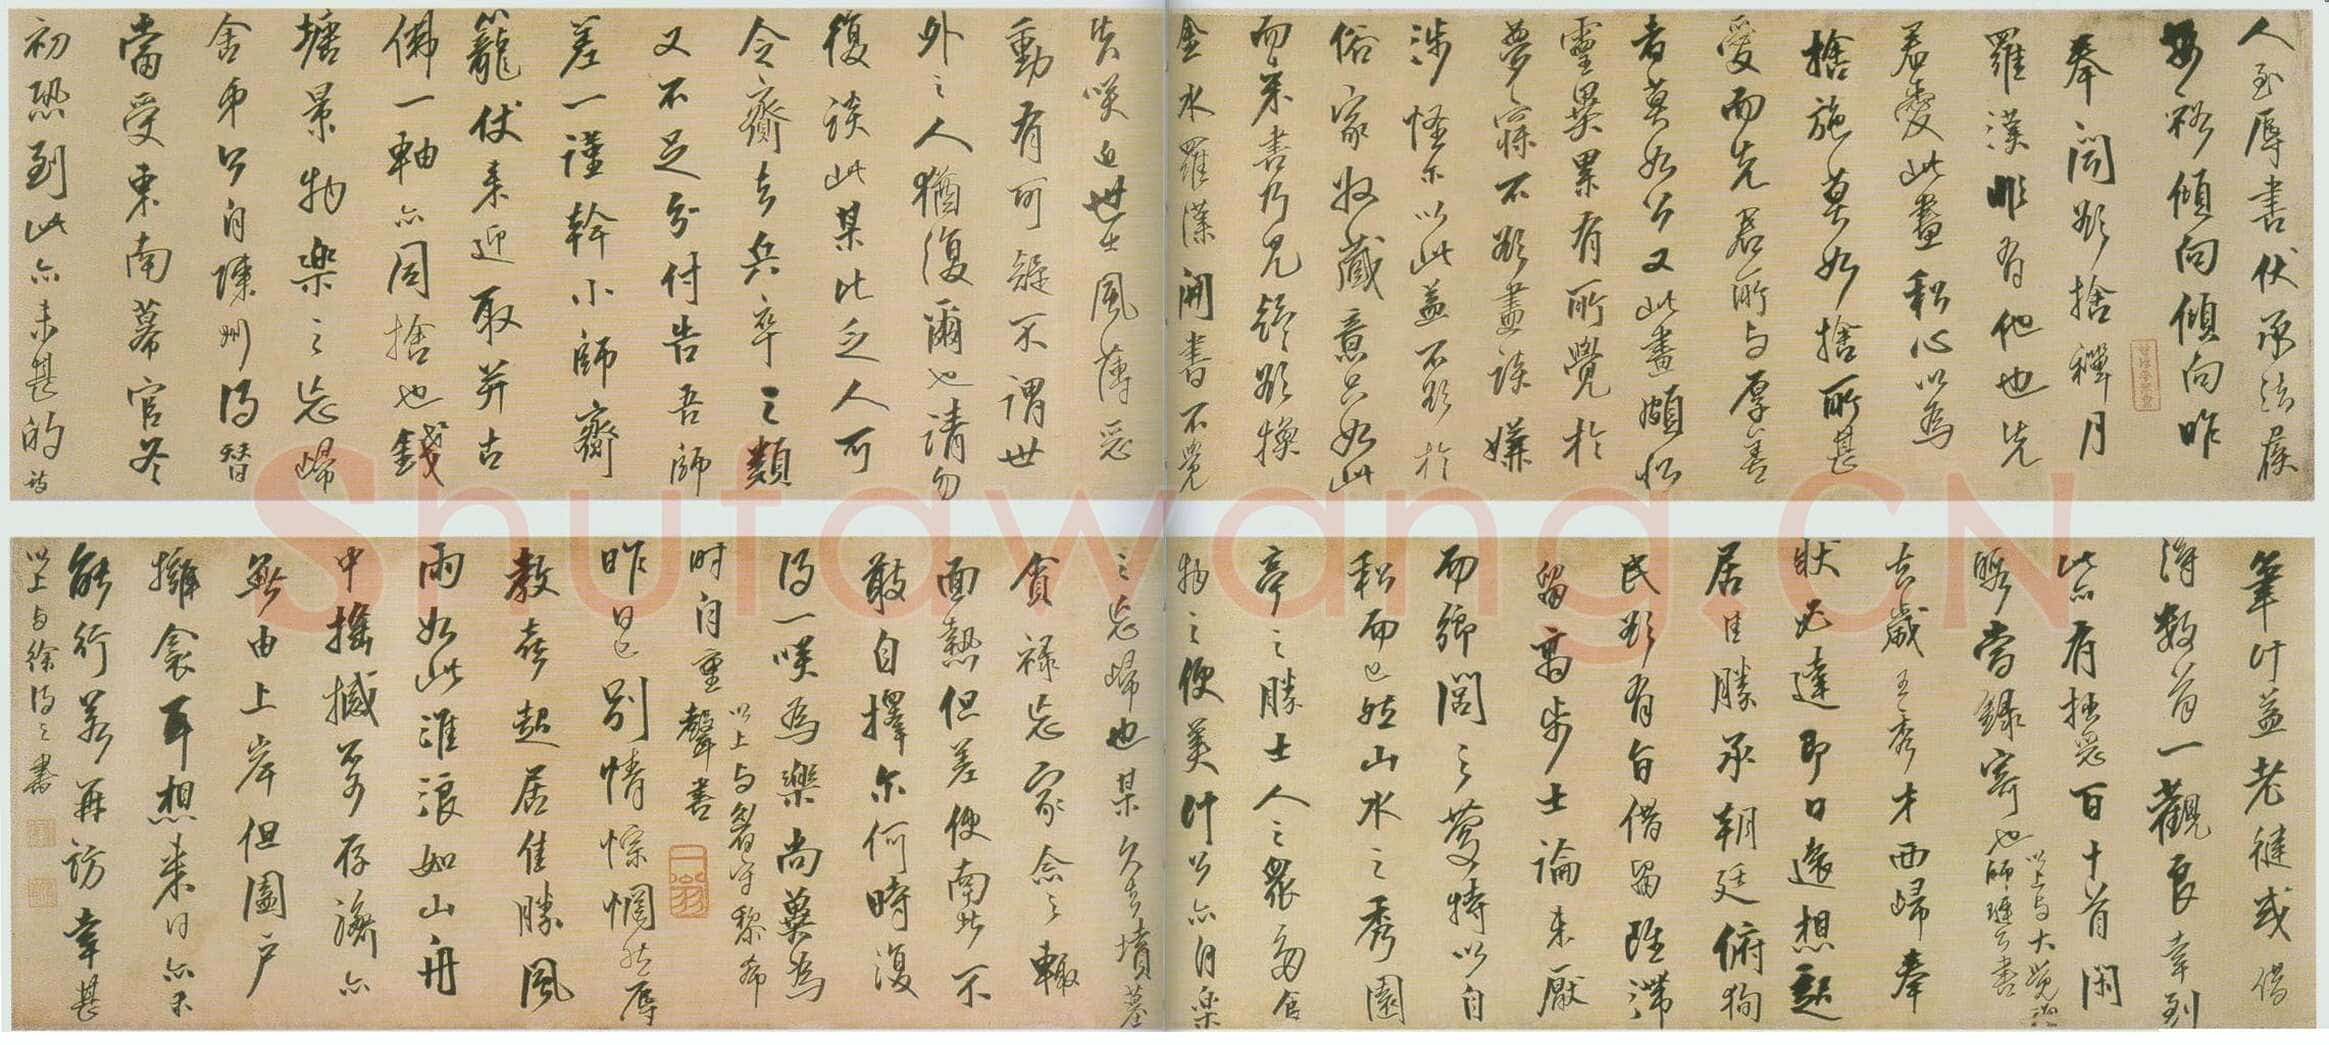 人至辱書伏承法候
安裕傾向傾向昨
奉聞欲捨禪月
羅漢非有他也先
君愛此畫私心以為
捨施莫如捨所甚
愛而先君所與厚善
者莫如公又此畫頗似
靈異累有所覺於
夢寐不欲盡談嫌
涉怪爾以此益不欲於
俗家收藏意只如此
而來書乃見疑欲換
金水羅漢開書不覺
失笑近世士風薄惡
動有可疑不謂世
外之人猶復爾也請勿
復談此某比乏人可
令齎去兵卒之類
又不足分付告吾師
差一謹幹小師齎
籠仗來迎取並古
佛一軸亦同捨也錢
塘景物樂之忘歸
舍弟今自陳州得替
當受東南幕官冬
初恐到此亦未甚的詩
筆計益老健或借
得數首一觀良幸到
此亦有拙惡百十首閑
暇當錄寄也以上與大覺禪師璉公書
去歲王秀才西歸奉
狀必達即日遠想起
居佳勝承朝廷俯徇
民欲有旨借留既滯
留高步士論未厭
而鄉閭之慶特以自
私而已然山水之秀園
亭之勝士人之眾多食
物之便美計公亦自樂
之忘歸也某久去墳墓
貪祿忘家念之輒
面熱但差使南北不
敢自擇爾何時復
得一笑為樂尚冀為
時自重以上與眉守黎希聲書
昨日已別情悰惘然辱
教喜起居佳勝風
雨如此淮浪如山舟
中搖撼不可存濟亦
無由上岸但闔戶
擁衾耳想來日亦未
能行若再訪幸甚
以上與徐得之書
Shufawang.CN